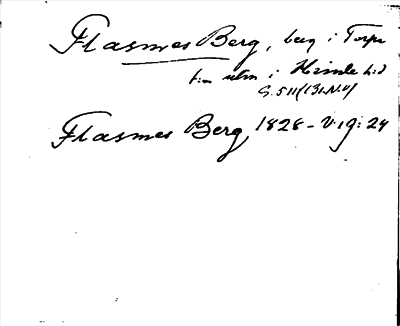 Flasmes Berg, berg i Torpa
s:n utm i Himle h:d
G. 511 (31 N.V)
Flasmes Berg, 1828 – V. 19: 24